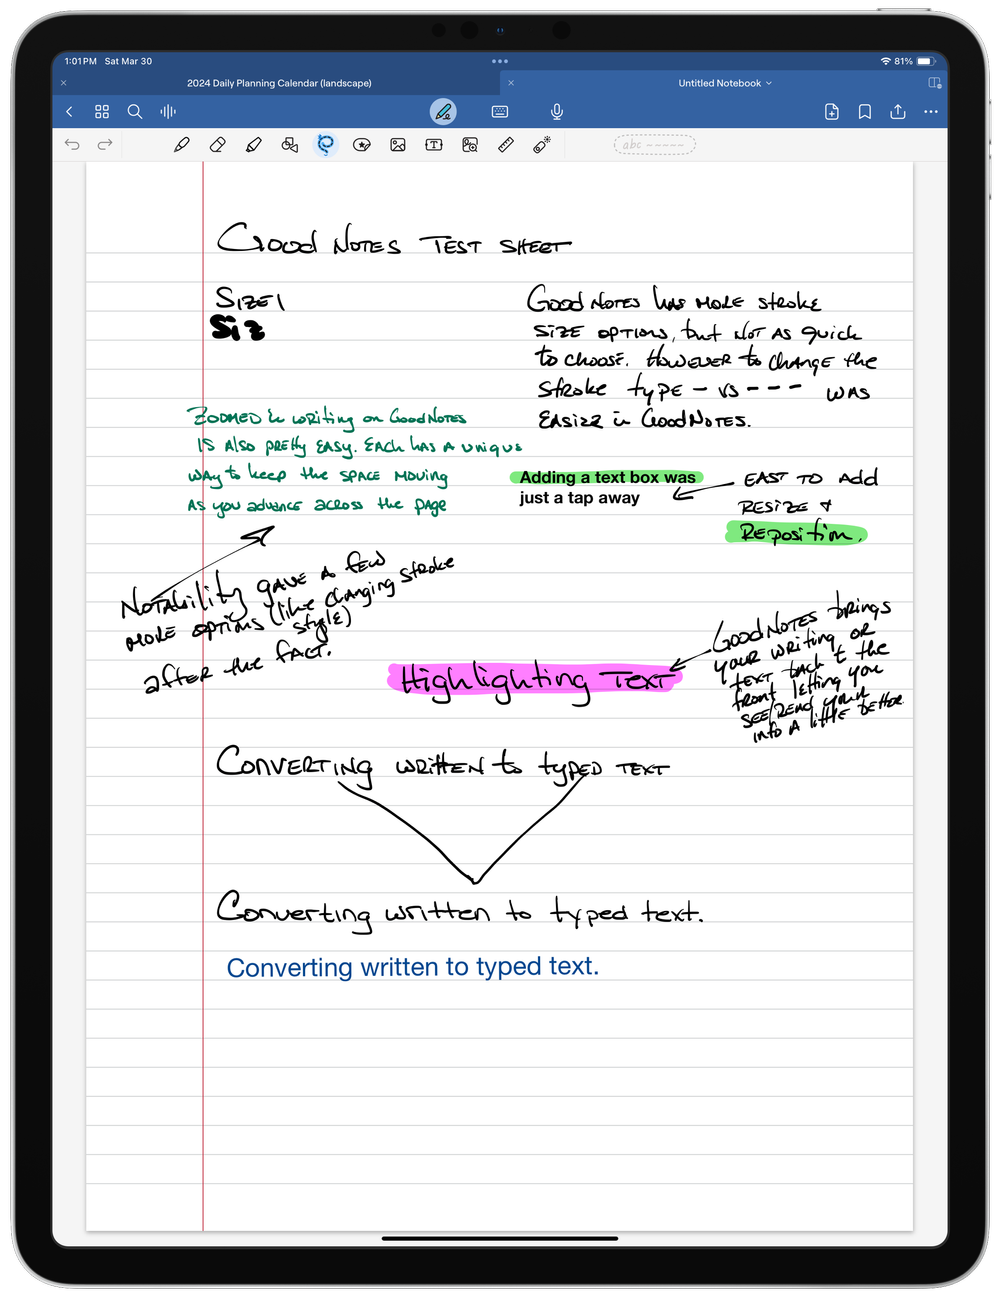 1:01 PM Sat Mar 30
81%
2024 Daily Planning Calendar (landscape)
Untitled Notebook
abc
GOOD NOTES TEST SHEET
SIZE 1
Siz
GOOD NOTES HAS MORE STROKE
SIZE OPTIONS, but NOT AS quick
to choose. HOWEVER to CHANGE the
Stroke type – vs --- WAS
EASIER in GOODNOTES.
ZOOMED in writing on GOODNOTES
IS Also pretty EASY. EACH HAS A unique
WAY to keep the SPACE MOVING
AS you advance across the page
Adding a text box was
just a tap away
EAST TO Add
RESIZE +
REPOSITION.
NOTABILITY GAVE A few
MORE OPTIONS (like changing stroke
style)
after the FACT.
Highlighting TEXT
GOODNOTES brings
your writing OR
TEXT back t the
front letting you
SEE/READ your
info A little better
CONVERTING WRITTEN to typed TEXT
Converting written to typed text.
Converting written to typed text.